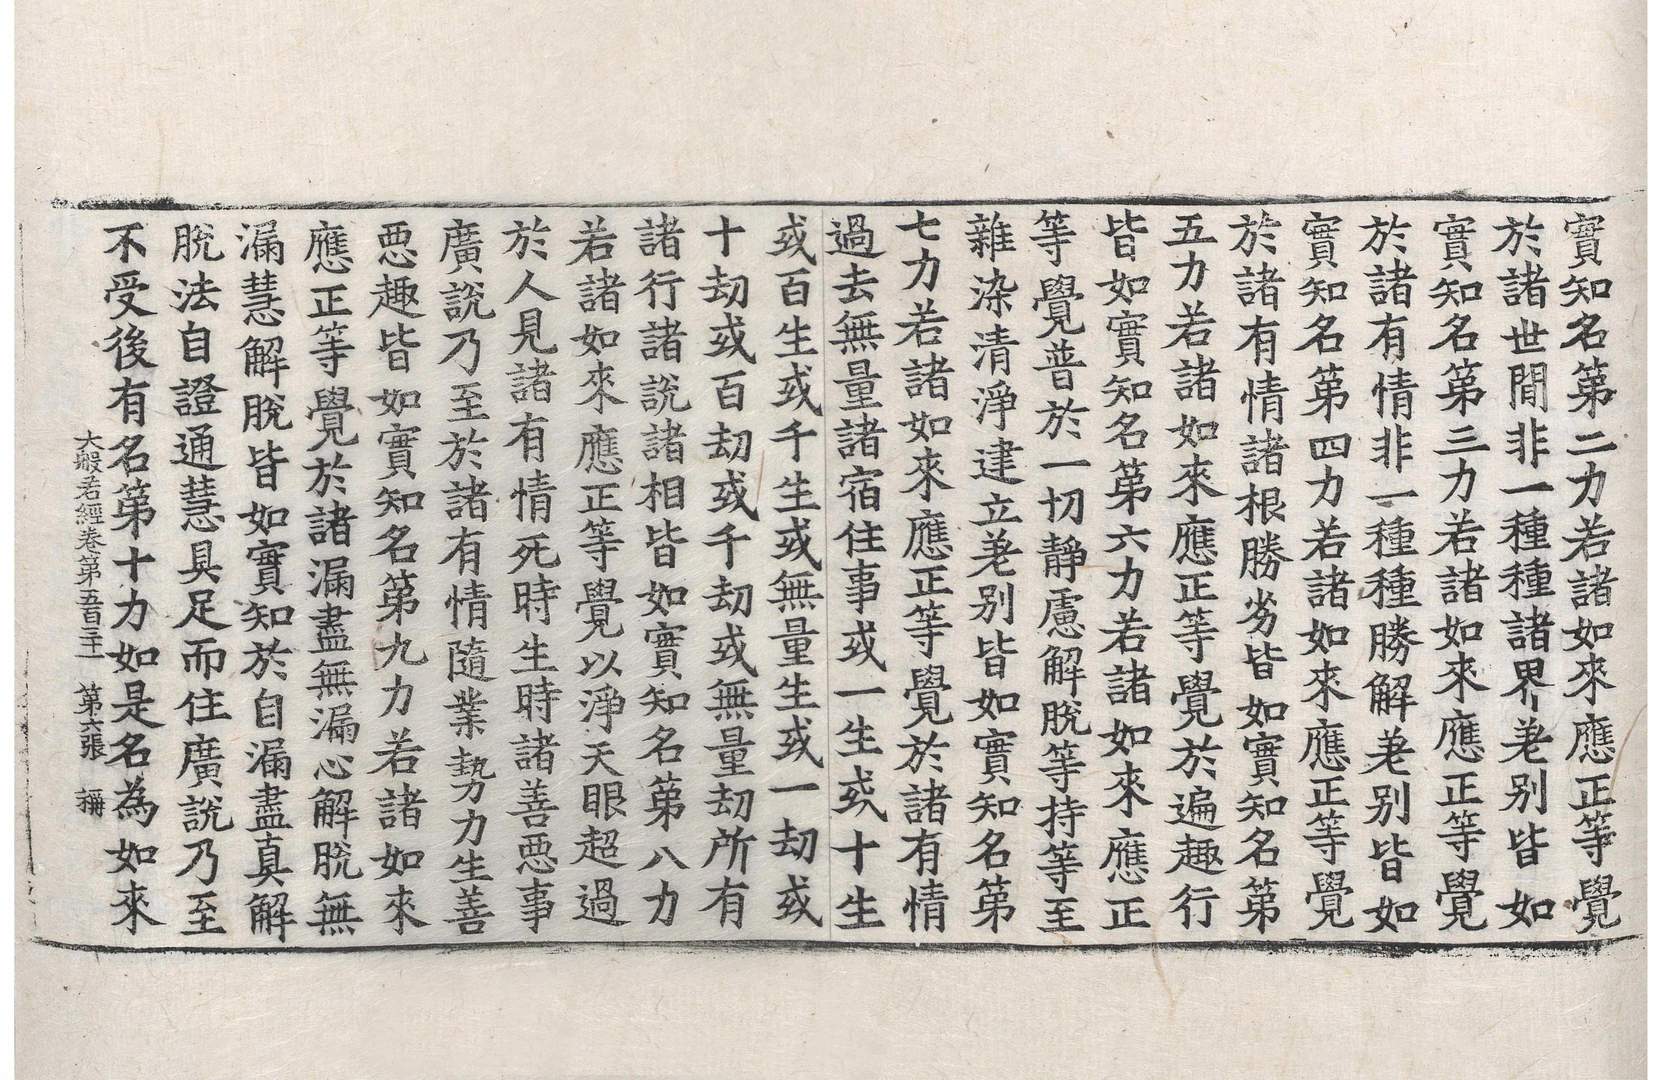 實知名第二力若諸如來應正等覺
於諸世間非一種種諸界差別皆如
實知名第三力若諸如來應正等覺
於諸有情非一種種勝解差別皆如
實知名第四力若諸如來應正等覺
於諸有情諸根勝劣皆如實知名第
五力若諸如來應正等覺於遍趣行
皆如實知名第六力若諸如來應正
等覺普於一切靜慮解脫等持等至
雜染清淨建立差別皆如實知名第
七力若諸如來應正等覺於諸有情
過去無量諸宿住事或一生或十生
或百生或千生或無量生或一劫或
十劫或百劫或千劫或無量劫所有
諸行諸說諸相皆如實知名第八力
若諸如來應正等覺以淨天眼超過
於人見諸有情死時生時諸善惡事
廣說乃至於諸有情隨業勢力生善
惡趣皆如實知名第九力若諸如來
應正等覺於諸漏盡無漏心解脫無
漏慧解脫皆如實知於自漏盡真解
脫法自證通慧具足而住廣說乃至
不受後有名第十力如是名為如來
大般若經卷第五百三十一 第六張 稱